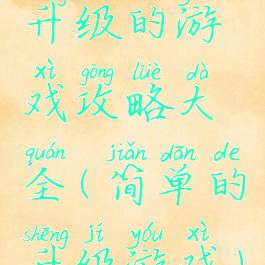 升级的游
xì gōng lüè dà
戏攻略大
quán jiǎn dān de
全(简单的
shēng jí yóu xì
升级游戏)